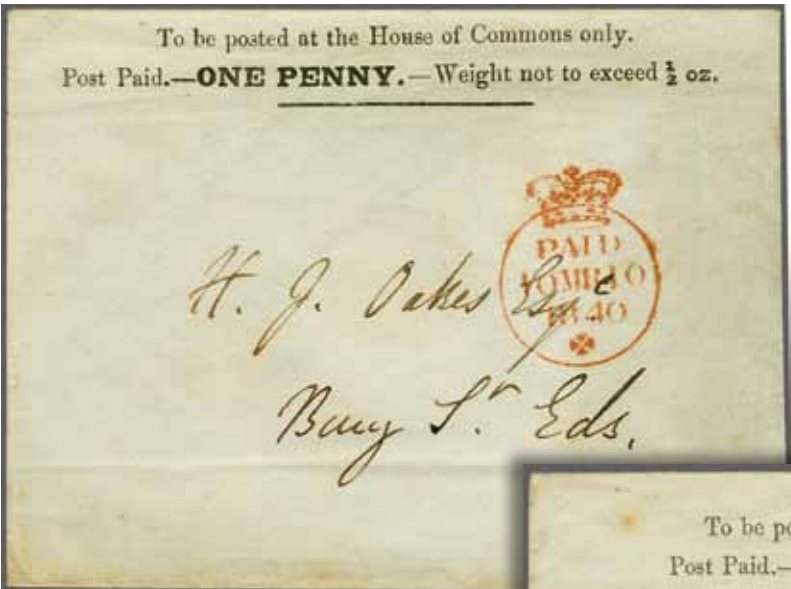 To be posted at the House of Commons only.
Post Paid.—ONE PENNY.—Weight not to exceed ½ oz.
PAID
10MR10
1840
H. J. Oakes Esqe
Bury St. Eds.
To be po
Post Paid.—